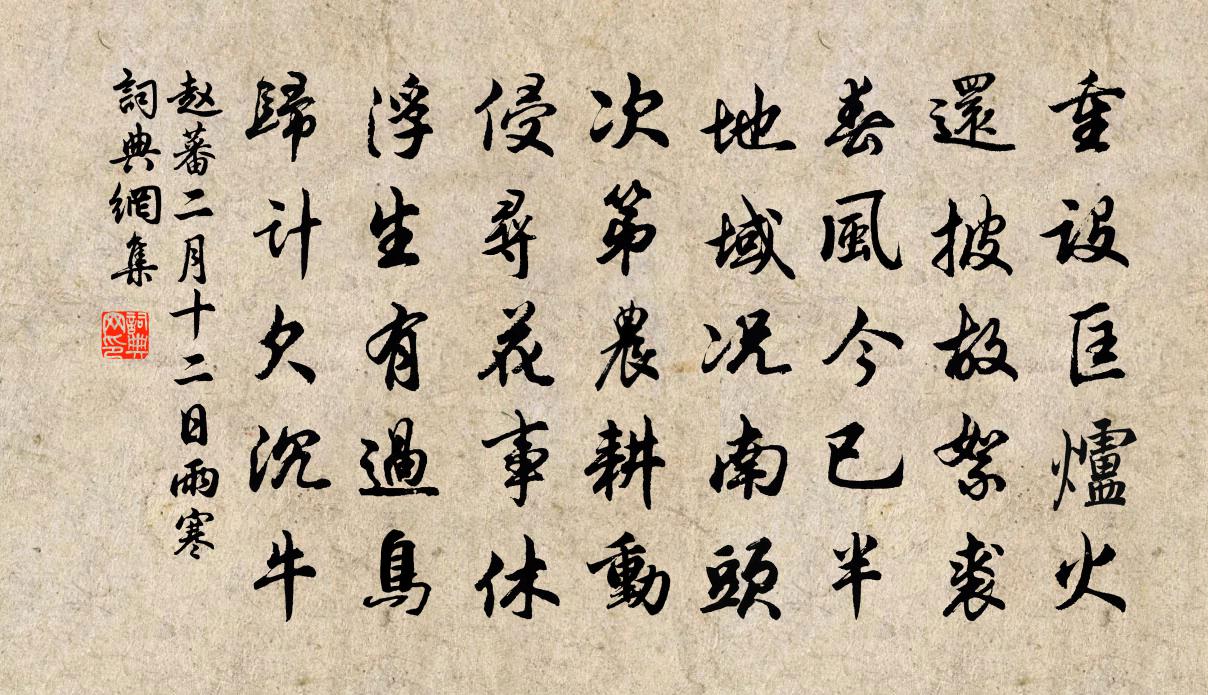 重設匡爐火
還披故絮裘
春風今已半
地域況南頭
次第農耕動
侵尋花事休
浮生有過鳥
歸計欠沉牛
赵蕃二月十二日雨寒
詞典網集
詞典网印